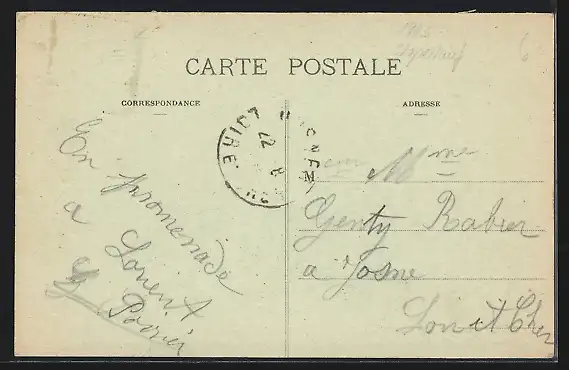 CARTE POSTALE
CORRESPONDANCE
ADRESSE
En promenade
a Lorient
G Poirier
M Mme
Genty Rabier
a Josne
Loir et Cher